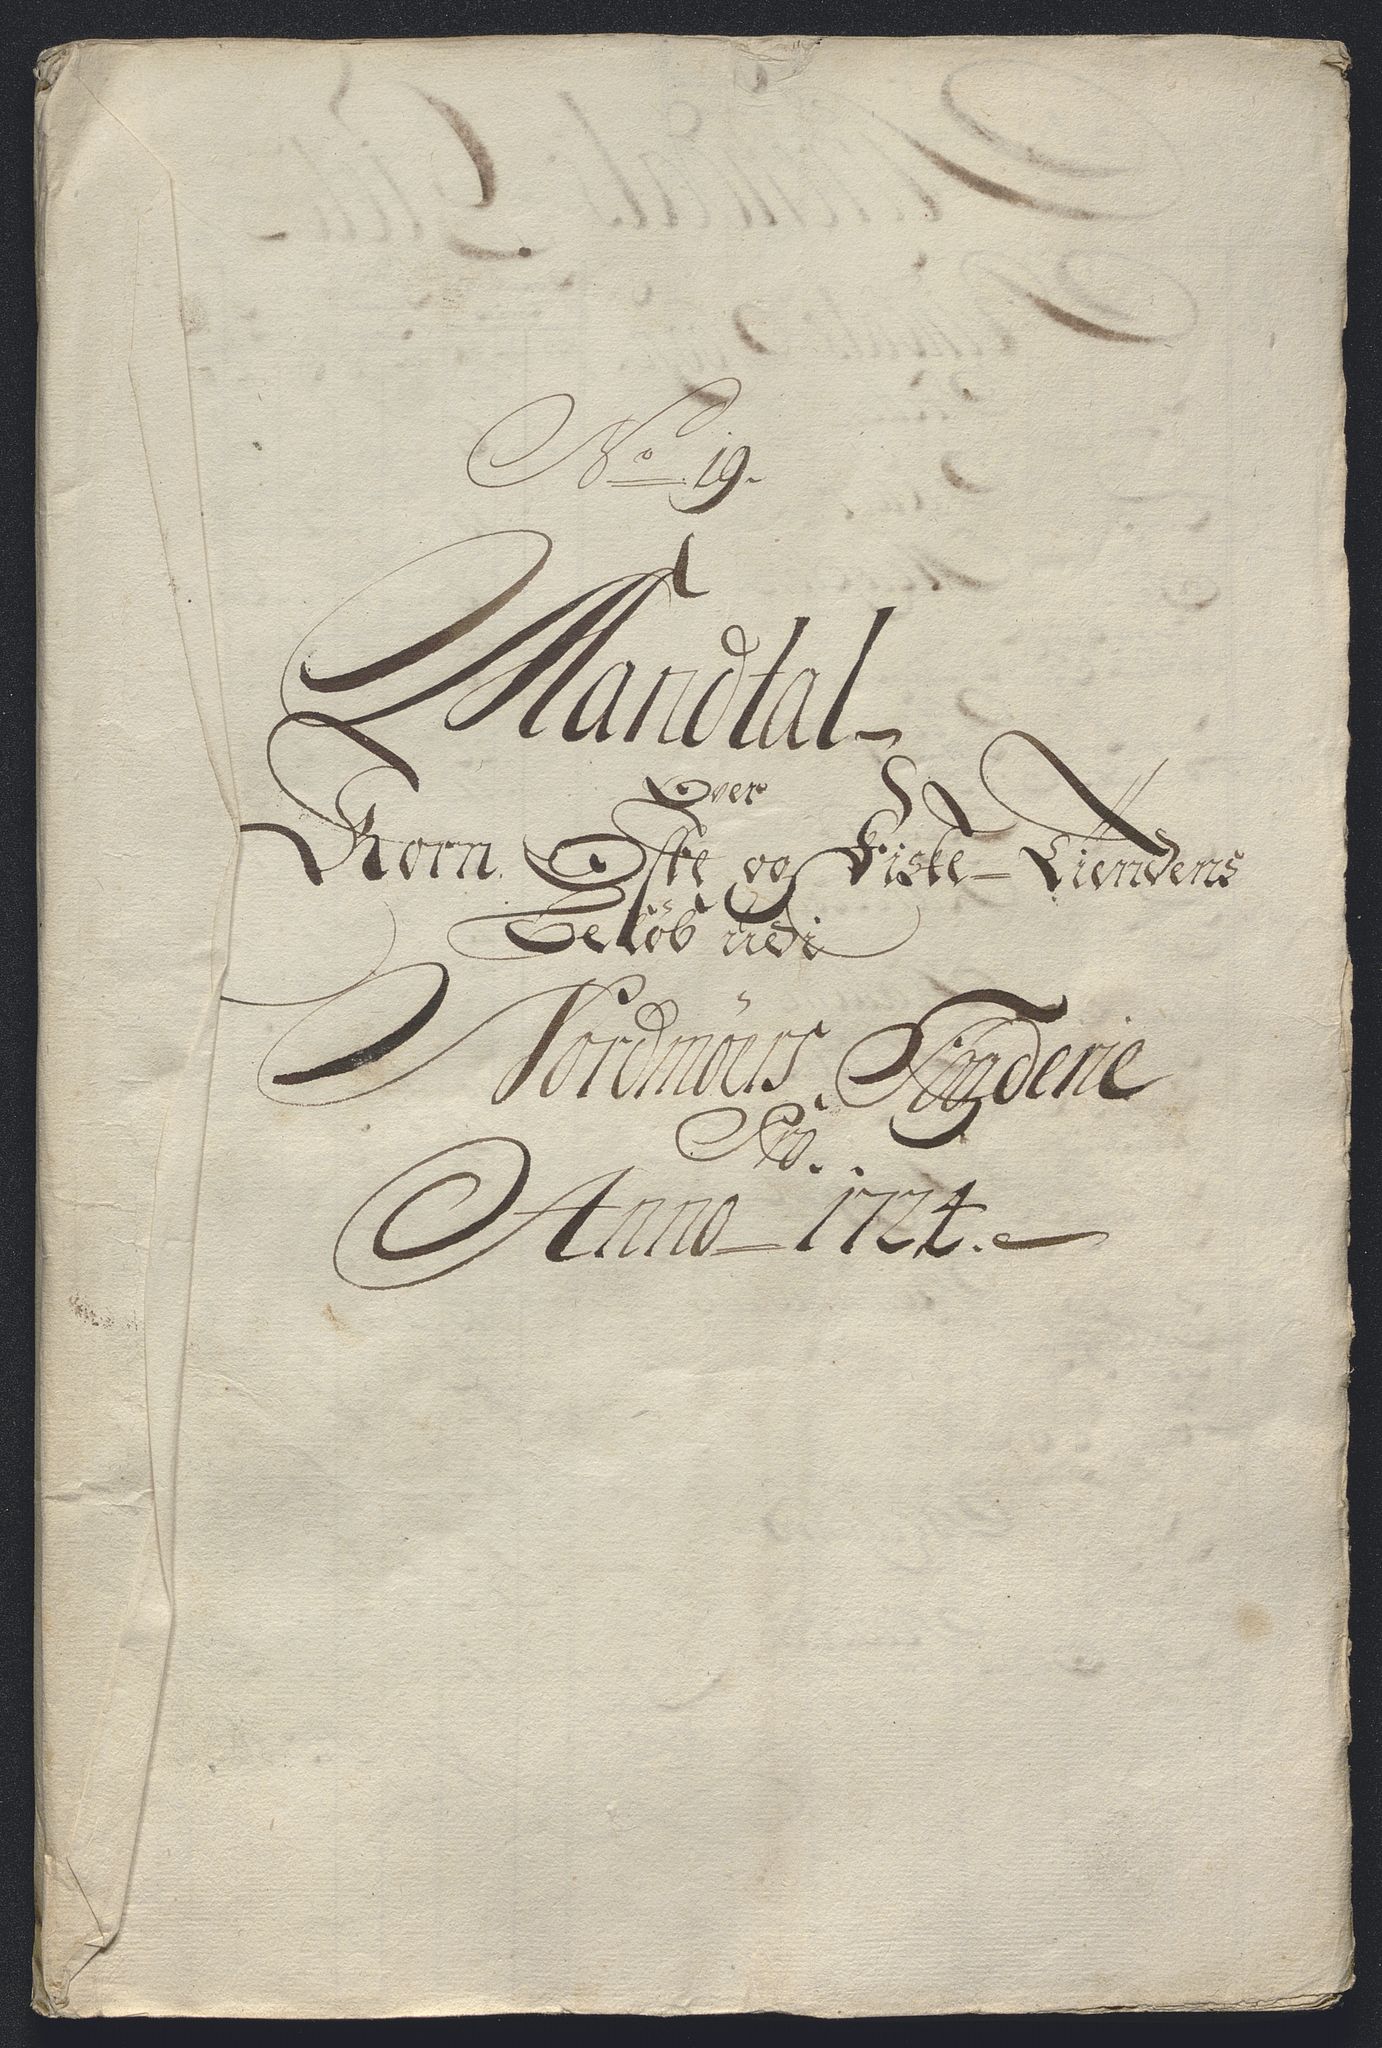 No 19.
Mandtal
Over
Korn Oste og Fiske-Tiendens
Beløb udi
Nordmøers Fogderie
Pro.
Anno 1724.